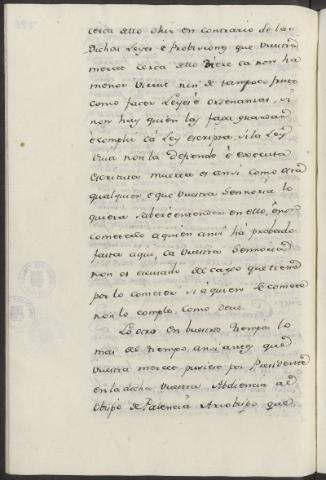 cerca dello obir en contrario de las
dichas Leyes é Probisiones que Vuestra
merced cerca dello diere ca non ha
menor virtut nin dá tampoco fruto
como facer Leyes é Ordenanzas, si
non hay quien las faga guardar
é complir cá Ley escripta, si la Ley
viva non la defiende é executa
escritura muerta es ansi como otra
qualquier, é que vuestra Sennoria lo
quiera saber é entender en ello, é non
cometerlo a quien ansi há probado
fasta aqui, ca vuestra Sennoria
non es escusado del cargo que tiene
por lo cometer si á quien lo comete
non lo comple, como deve.
Lo otro en vuestro tiempo, lo
mas del tiempo, ansi antes que
vuestra merced pusiese por Presidente
en la dicha vuestra Abdiencia al
Obispo de Palencia Arzobispo que